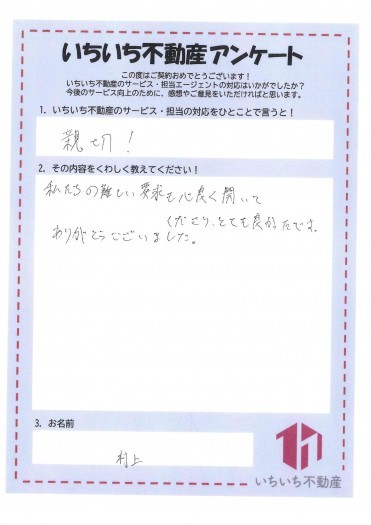 いちいち不動産アンケート
この度はご契約おめでとうございます！
いちいち不動産のサービス・担当エージェントの対応はいかがでしたか？
今後のサービス向上のために、感想やご意見をいただければと思います。
1. いちいち不動産のサービス・担当の対応をひとことで言うと！
親切！
2. その内容をくわしく教えてください！
私たちの難しい要求も心良く聞いて
くださり、とても良かったです。
ありがとうございました。
3. お名前
村上
いちいち不動産